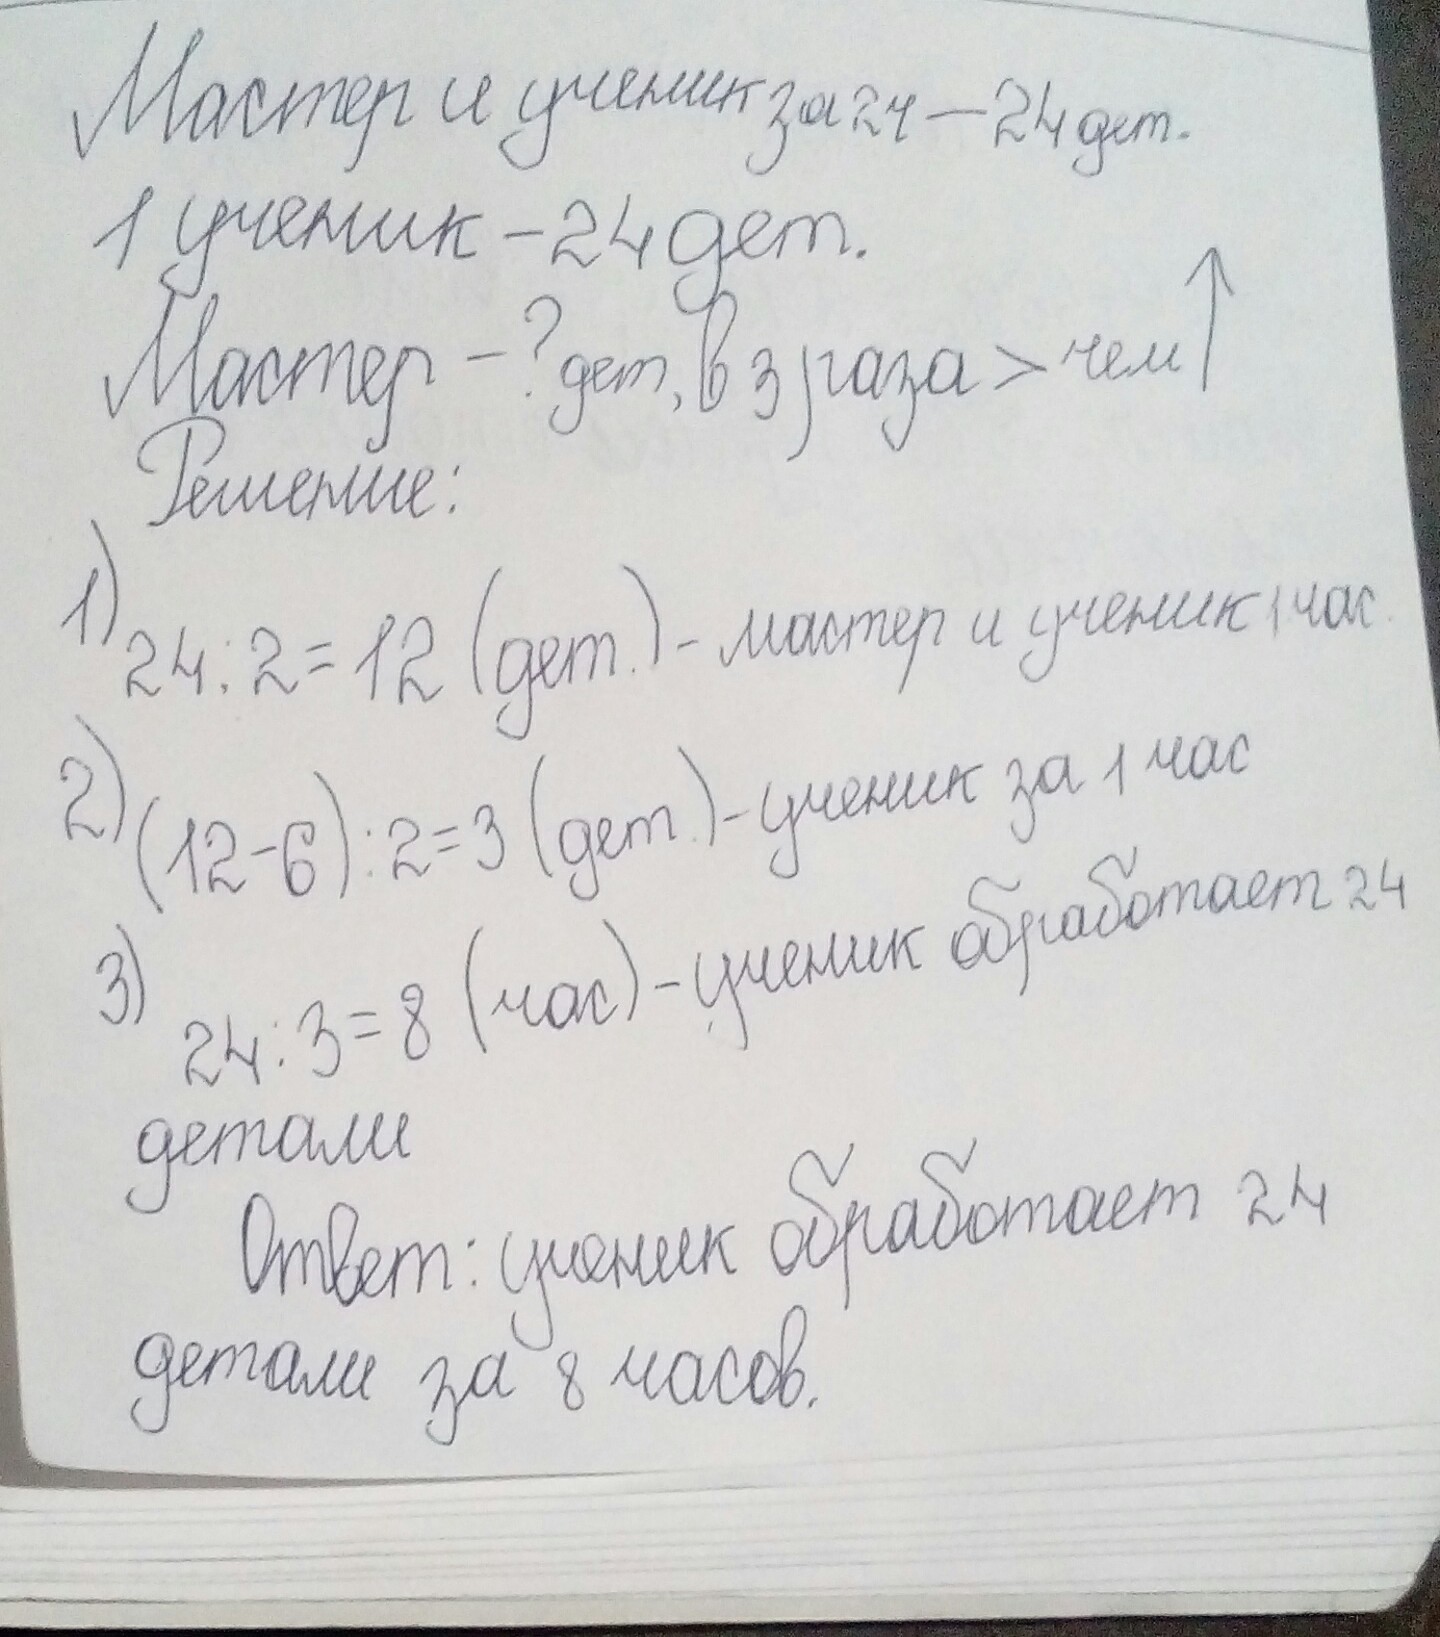 Мастер и ученик за 2ч — 24 дет.
1 ученик – 24 дет.
Мастер – ? дет, в 3 раза > чем ↑
Решение:
1) 24:2=12 (дет.) – мастер и ученик 1 час.
2) (12-6):2=3 (дет.) – ученик за 1 час
3) 24:3=8 (час) – ученик обработает 24
детали
Ответ: ученик обработает 24
детали за 8 часов.